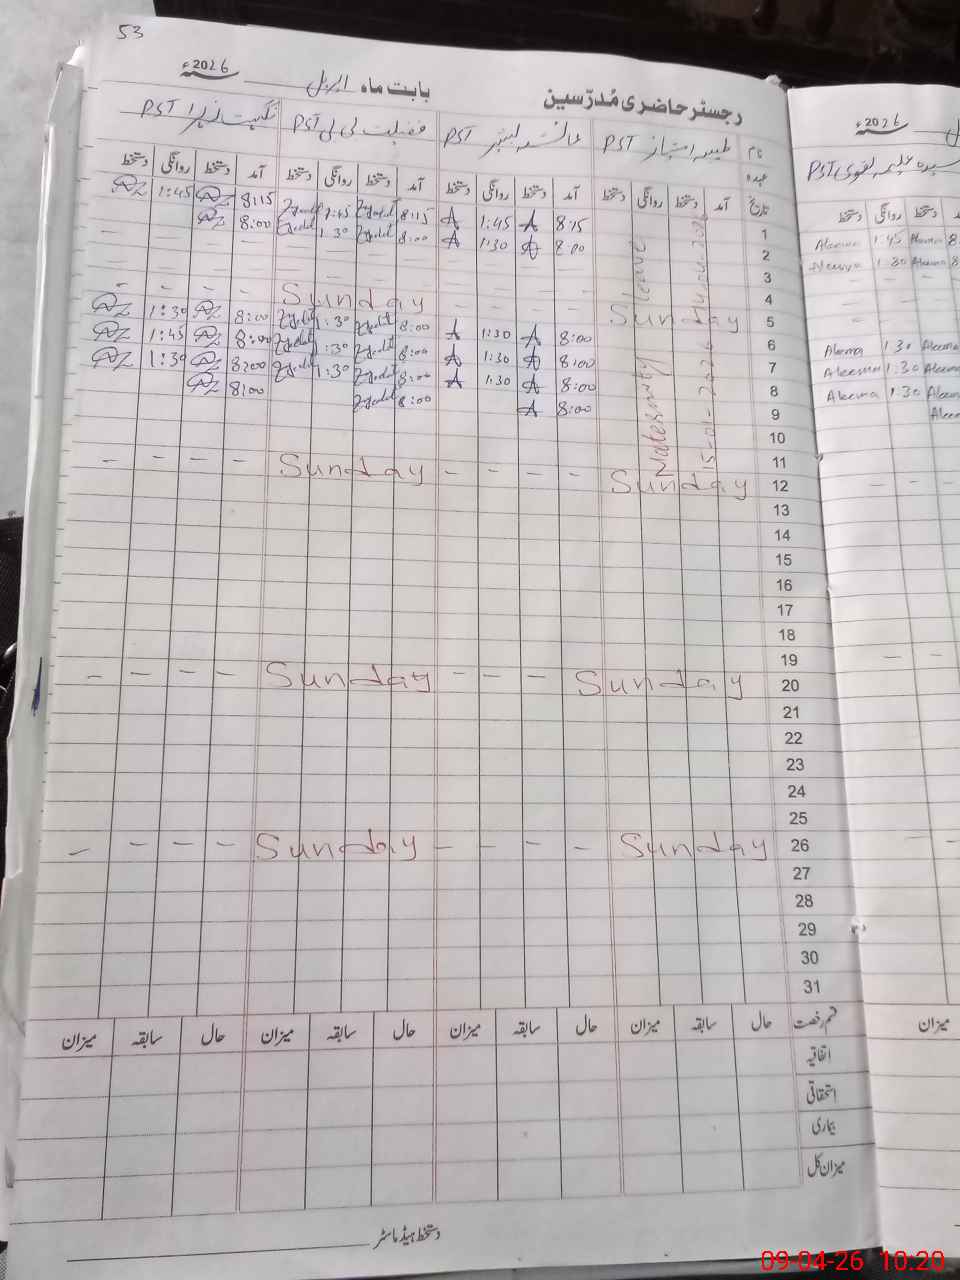 53
رجسٹر حاضری مُدرّسین بابت ماہ اپریل 2026ء
نام طیبہ امتیاز PST عائشہ PST فضیلت بی بی PST PST
عہدہ
تاریخ آمد دستخط روانگی دستخط آمد دستخط روانگی دستخط آمد دستخط روانگی دستخط آمد دستخط روانگی دستخط
1 8:15 A 1:45 A 8:15 1:45 8:15 1:45
2 8:00 A 1:30 A 8:00 1:30 8:00
3 – – – – – – – –
4 – – – – – – – –
5 Sunday – – – – Sunday – – – –
6 8:00 A 1:30 A 8:00 1:30 8:00 1:30
7 8:00 A 1:30 A 8:00 1:30 8:00 1:45
8 8:00 A 1:30 A 8:00 1:30 8:00 1:30
9 8:00 A 8:00 8:00
Maternity leave
15-01-2026
10
11
12 Sunday – – – – Sunday – – – –
13
14
15
16
17
18
19
20 Sunday – – – Sunday – – – –
21
22
23
24
25
26 Sunday – – – – Sunday – – – –
27
28
29
30
31
قسم رخصت حال سابقہ میزان حال سابقہ میزان حال سابقہ میزان حال سابقہ میزان
اتفاقیہ
استحقاقی
بیماری
میزان کل
دستخط ہیڈ ماسٹر
2026ء
PST
دستخط روانگی دستخط
Aleema 1:45 Aleema 8
Aleema 1:30 Aleema 8
Aleema 1:30 Aleema
Aleema 1:30 Aleema
Aleema 1:30 Aleem
Aleem
میزان
09-04-26 10:20